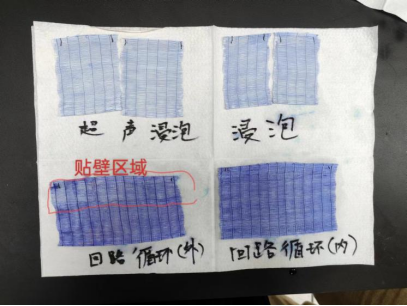 超声浸泡 浸泡
贴壁区域
回路循环(外) 回路循环(内)